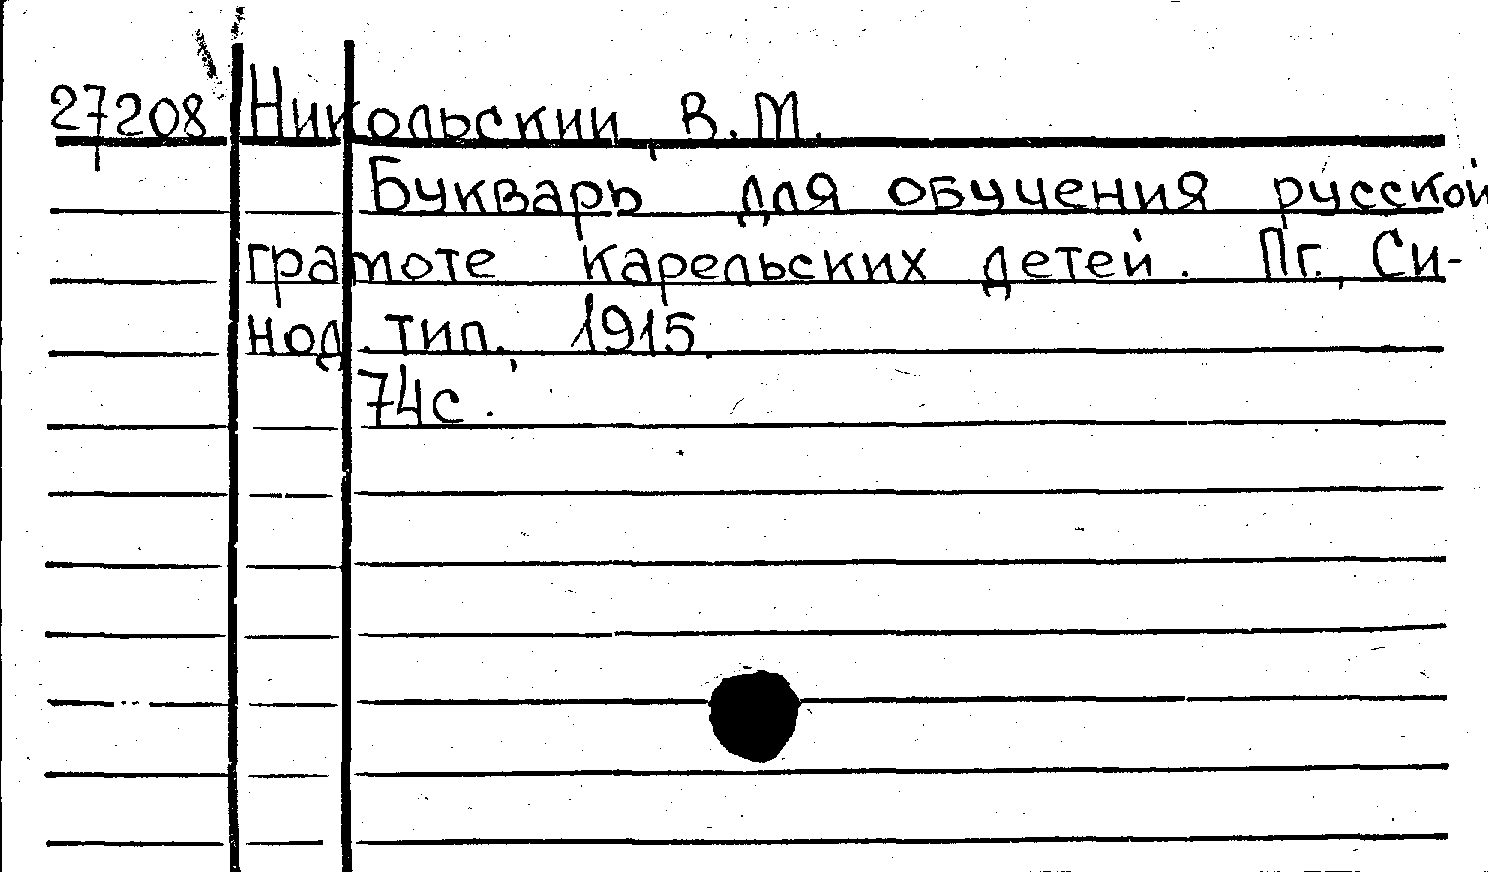 27208 Никольский, В.М.
Букварь для обучения русской
грамоте карельских детей. Пг., Си-
нод. тип., 1915.
74с.